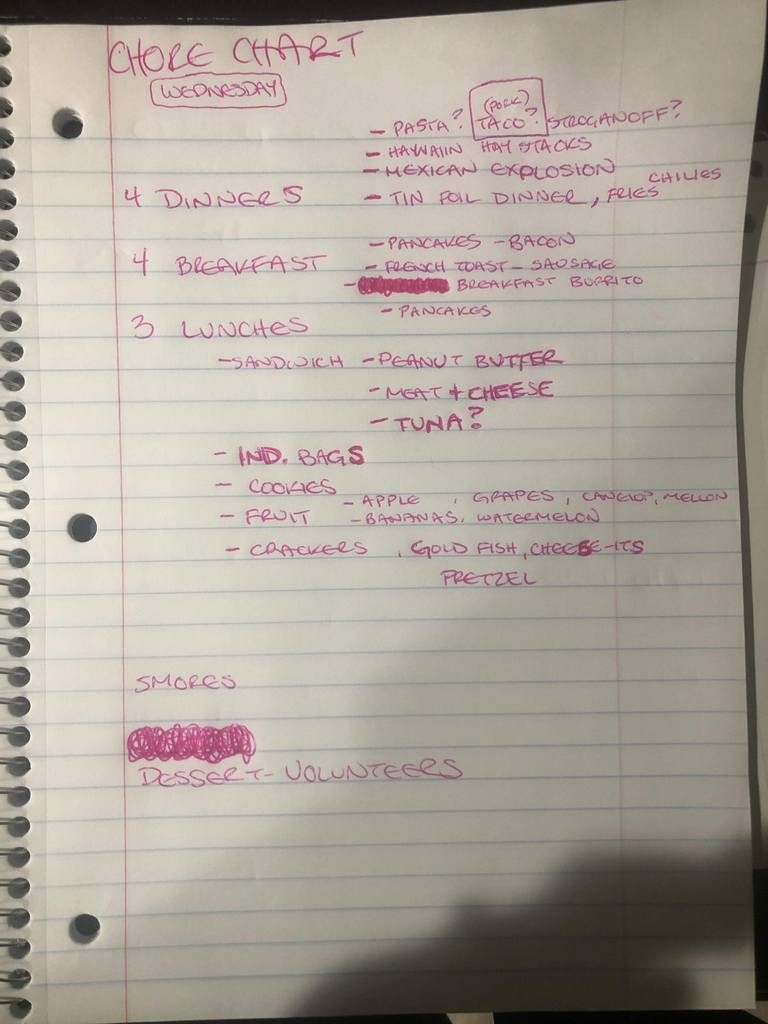 CHORE CHART
WEDNESDAY
- PASTA? (PORK) TACO? STROGANOFF?
- HAYWAIIN HAY STACKS
- MEXICAN EXPLOSION CHILIES
4 DINNERS - TIN FOIL DINNER, FRIES
- PANCAKES - BACON
4 BREAKFAST - FRENCH TOAST - SAUSAGE
- BREAKFAST BURRITO
- PANCAKES
3 LUNCHES
- SANDWICH - PEANUT BUTTER
- MEAT + CHEESE
- TUNA?
- IND. BAGS
- COOKIES
- APPLE, GRAPES, CANELOP, MELLON
- FRUIT - BANANAS, WATERMELON
- CRACKERS, GOLD FISH, CHEESE-ITS
PRETZEL
SMORES
DESSERT - VOLUNTEERS